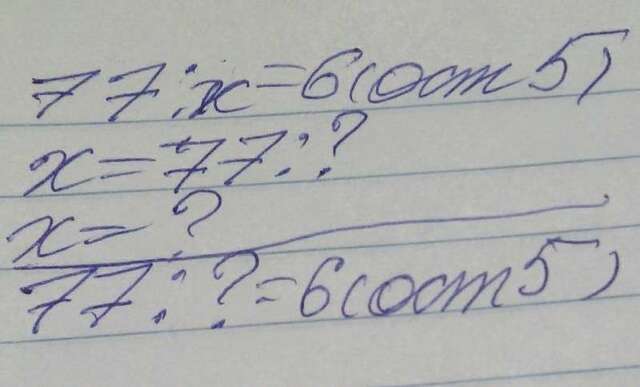 77:x=6(ост 5)
x=77:?
x=?
77:?=6(ост 5)